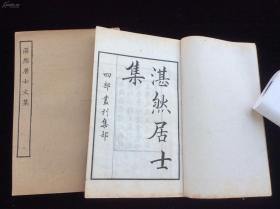 湛然居士
集
四部叢刊集部
湛然居士文集